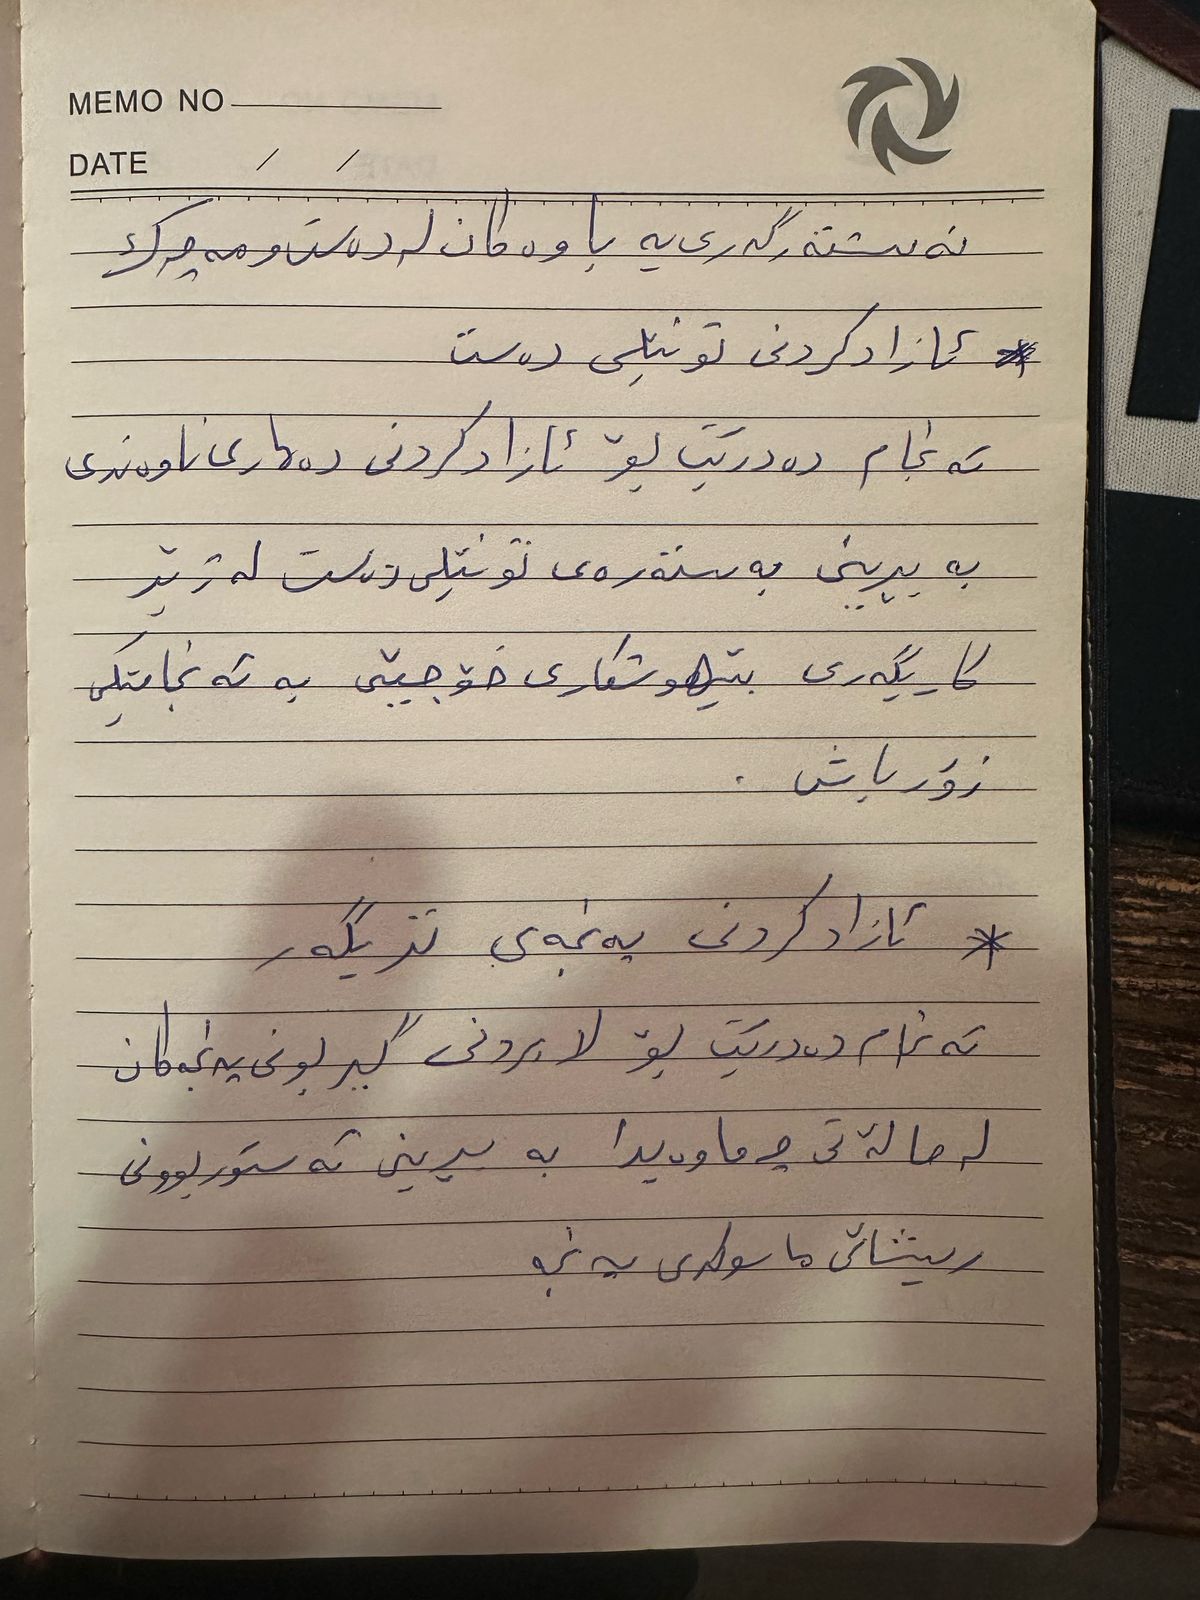 MEMO NO
DATE / /
نەشتەرگەری یە باوەکان لە دەست و مەچەک
* ئازادکردنی تونێلی دەست
ئەنجام دەدرێت لبۆ ئازادکردنی دەماری ناوەندی
بە بڕینی بەستەرەی تونێلی دەست لەژێر
کاریگەری بێهوشکاری خۆجێیی بە ئەنجامێکی
زۆر باش .
* ئازادکردنی پەنجەی تریگەر
ئەنجام دەدرێت لبۆ لابردنی گیربونی پەنجەکان
لە حالەتی چەماوەیدا بە بڕینی ئەستوربوونی
ریشاڵی ماسولکەی پەنجە